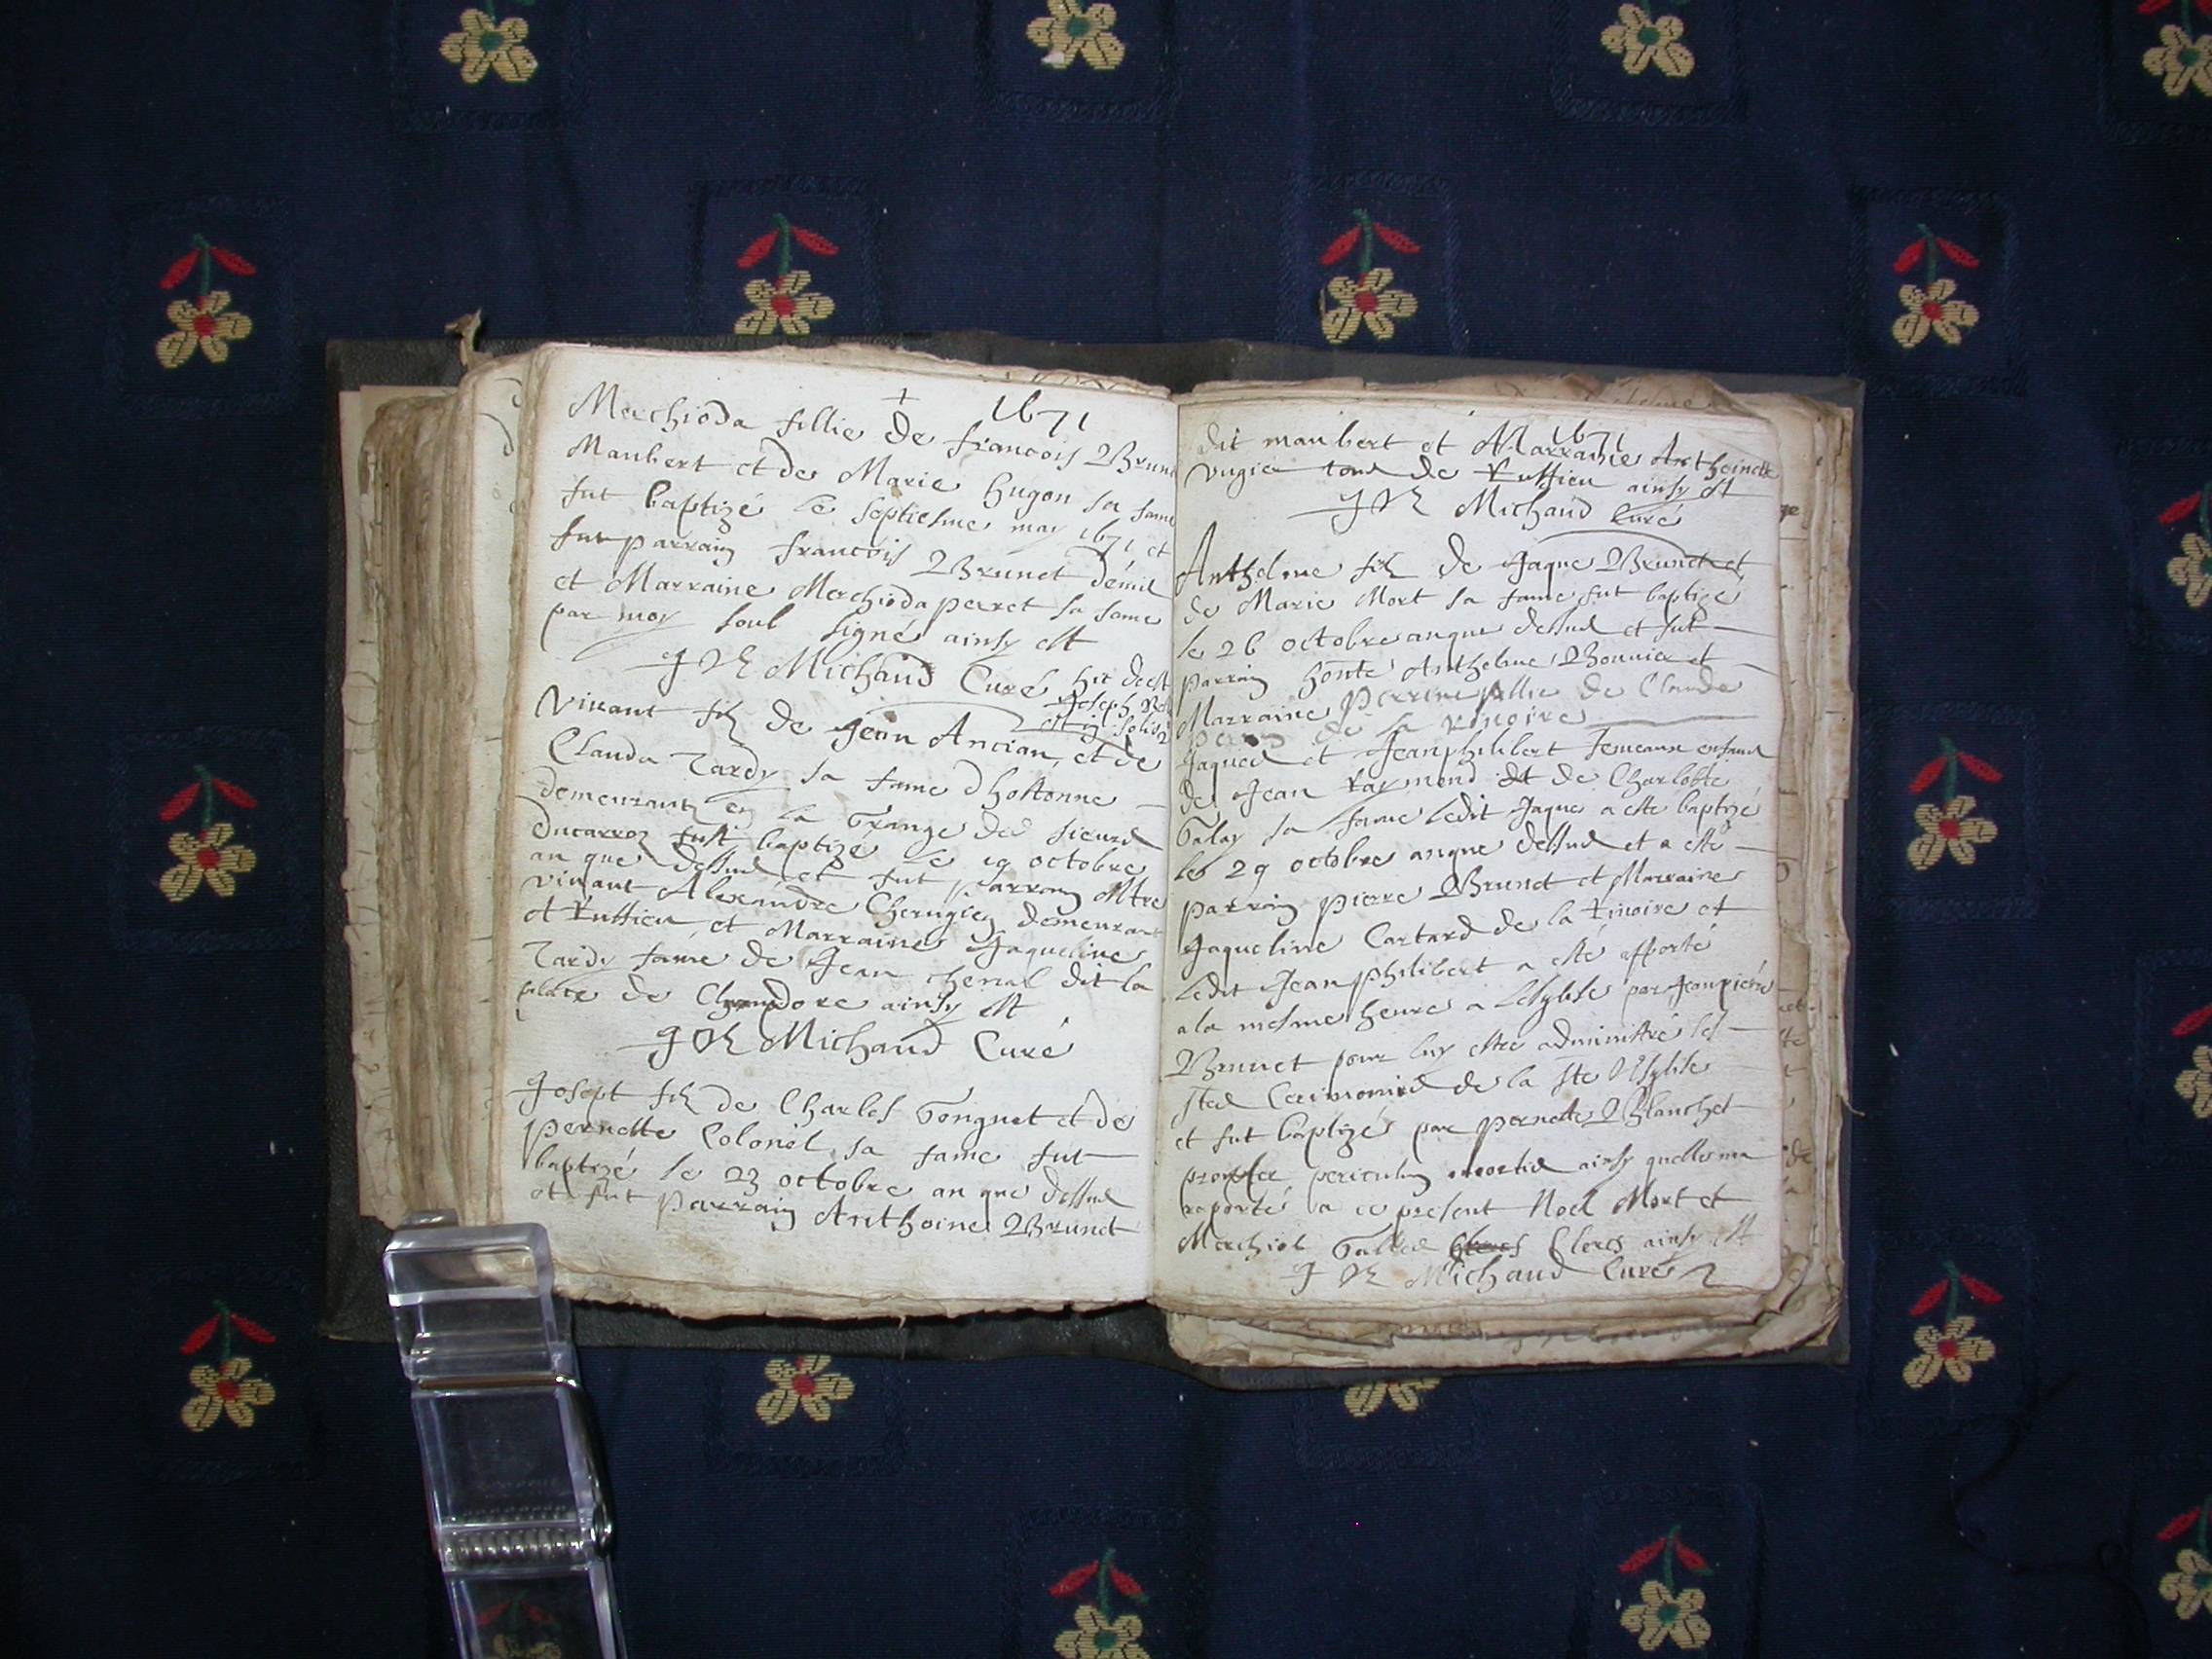 1671
Merchioda fillie de francois Brunet
Maubert et de Marie hugon sa fame
fut baptizé le septiesme may 1671 et
fut parrain francois Brunet démié
et Marraine Merchioda perret sa fame
par moy soub signé ainsy est
Michaud Curé hic deest
Joseph
Vivant filz de Jean Ancian, et de
Clauda Tardy sa fame dhostonne
demeurant en la Grange des sieurs
Ducarroz fust baptizé le 19 octobre
an que dessus et fut parrain Mtre
vinvant Alexandre Cheruglen demeurant
et Ruffieu, et Marraine Jaqueline
Tardy fame de Jean cheual dit la
place de Chandore ainsy est
Michaud Curé
Josept filz de Charles Gonguet et de
pernette Colonel sa fame fut
baptizé le 23 octobre an que dessus
et fut parrain Anthoine Brunet
1671
dit maubert et Marraine Anthoinette
vugier tous de Ruffieu ainsy est
Michaud Curé
Anthelme filz de Jaque Brunet et
de Marie Mort sa fame fut baptizé
le 26 octobre an que dessus et fut
parrain honte Anthelme Bonnier et
Marraine perrine fillie de Claude
de la Rivoire
Jaques et Jeanphilibert Jemeaux enfans
de Jean Raymond et de Charlotte
Galay sa fame ledit Jaques a esté baptizé
le 29 octobre an que dessus et a esté
parrain pierre Brunet et Marraine
Jaqueline Cartard de la Rivoire et
ledit Jean philibert a esté apporté
a la mesme heure a Lesglise par Jean pierre
Brunet pour luy estre administré les
stes Ceremonies de la ste Esglise
et fut baptizé par pernette Blanchet
propter periculum mortis ainsy quelle ma
raporté a ce present Noel Mort et
Merchiot Gallet Clercs ainsy est
Michaud Curé